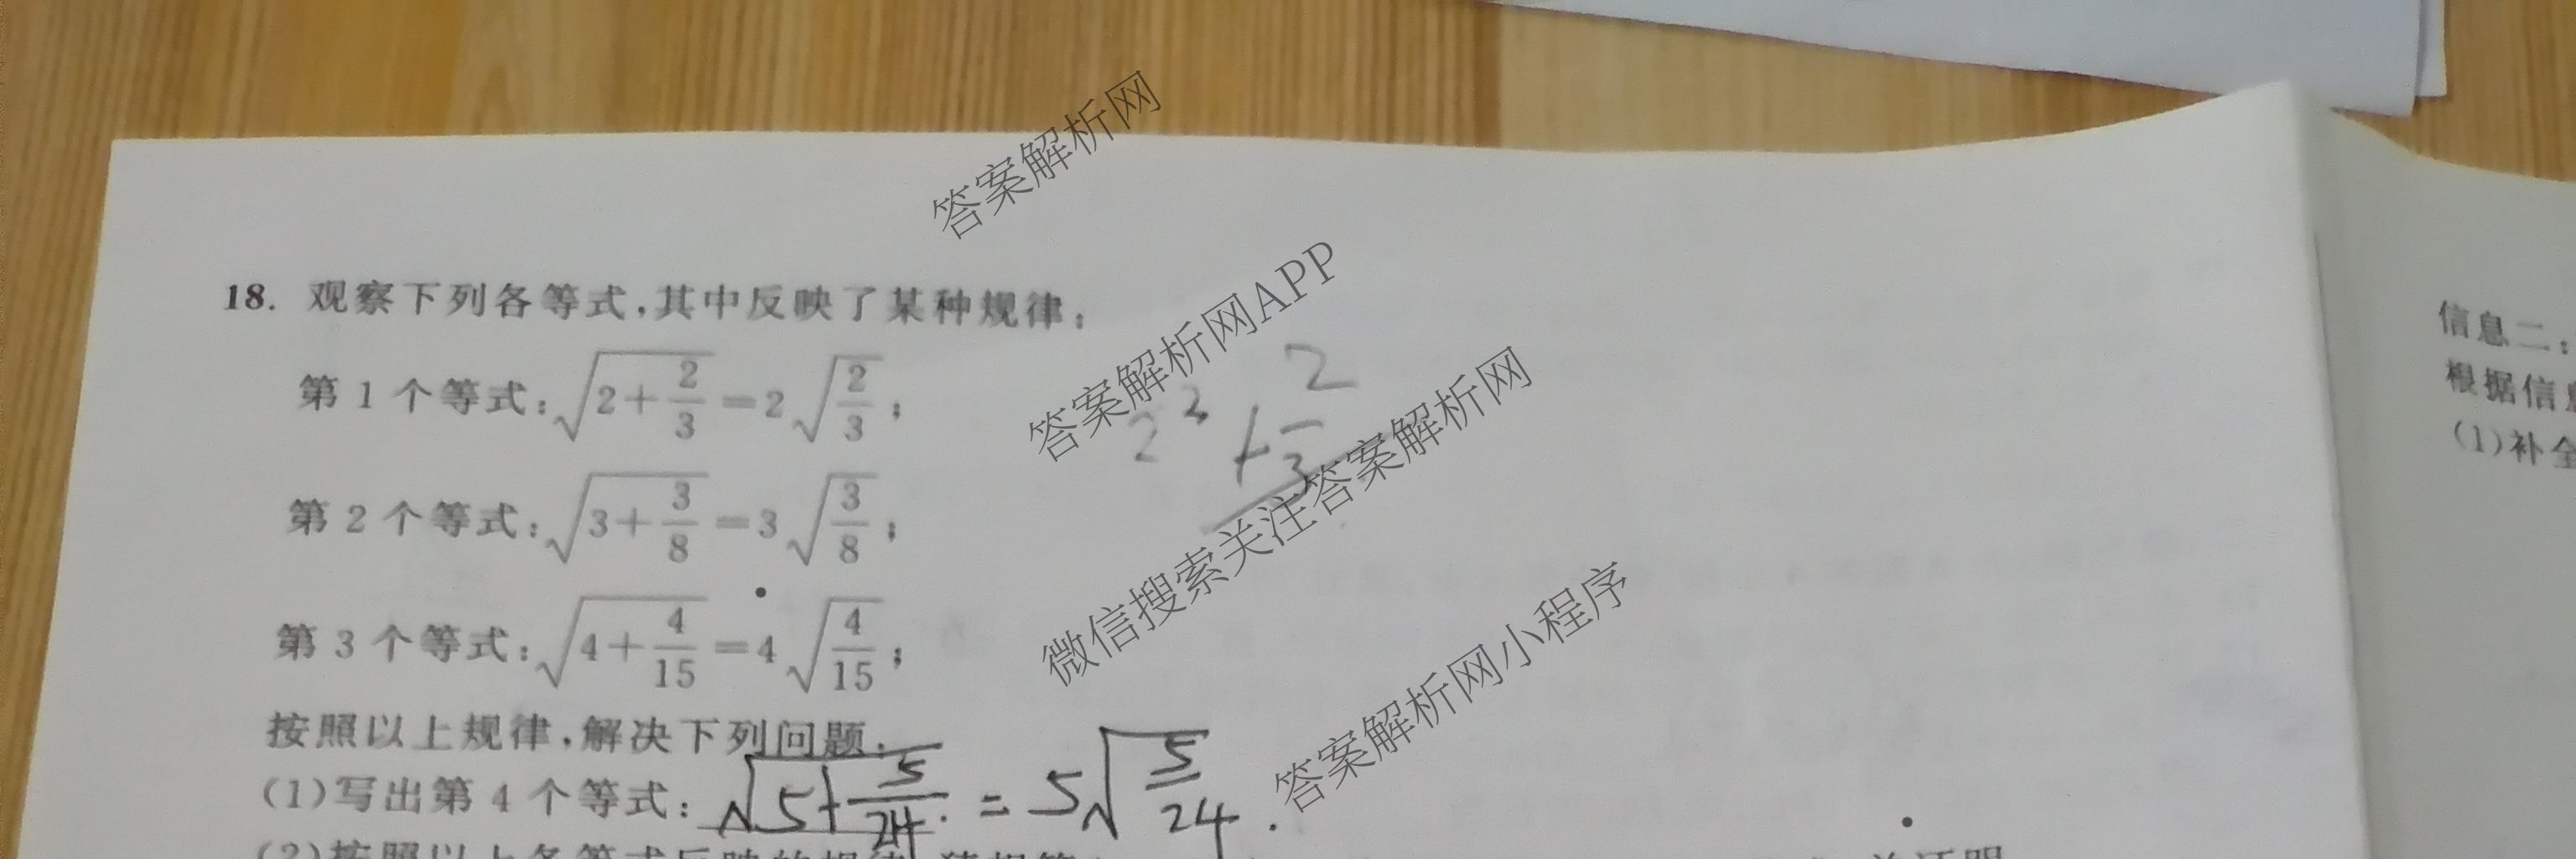 答案解析网
18. 观察下列各等式,其中反映了某种规律:
答案解析网APP
第 1 个等式:√(2+2/3)=2√(2/3);
2² + 2/3
第 2 个等式:√(3+3/8)=3√(3/8);
微信搜索关注答案解析网
第 3 个等式:√(4+4/15)=4√(4/15);
答案解析网小程序
按照以上规律,解决下列问题.
(1)写出第 4 个等式: √(5+5/24) = 5√(5/24) .
(2)按照以上各等式反映的规律
信息二:
根据信息
(1)补全